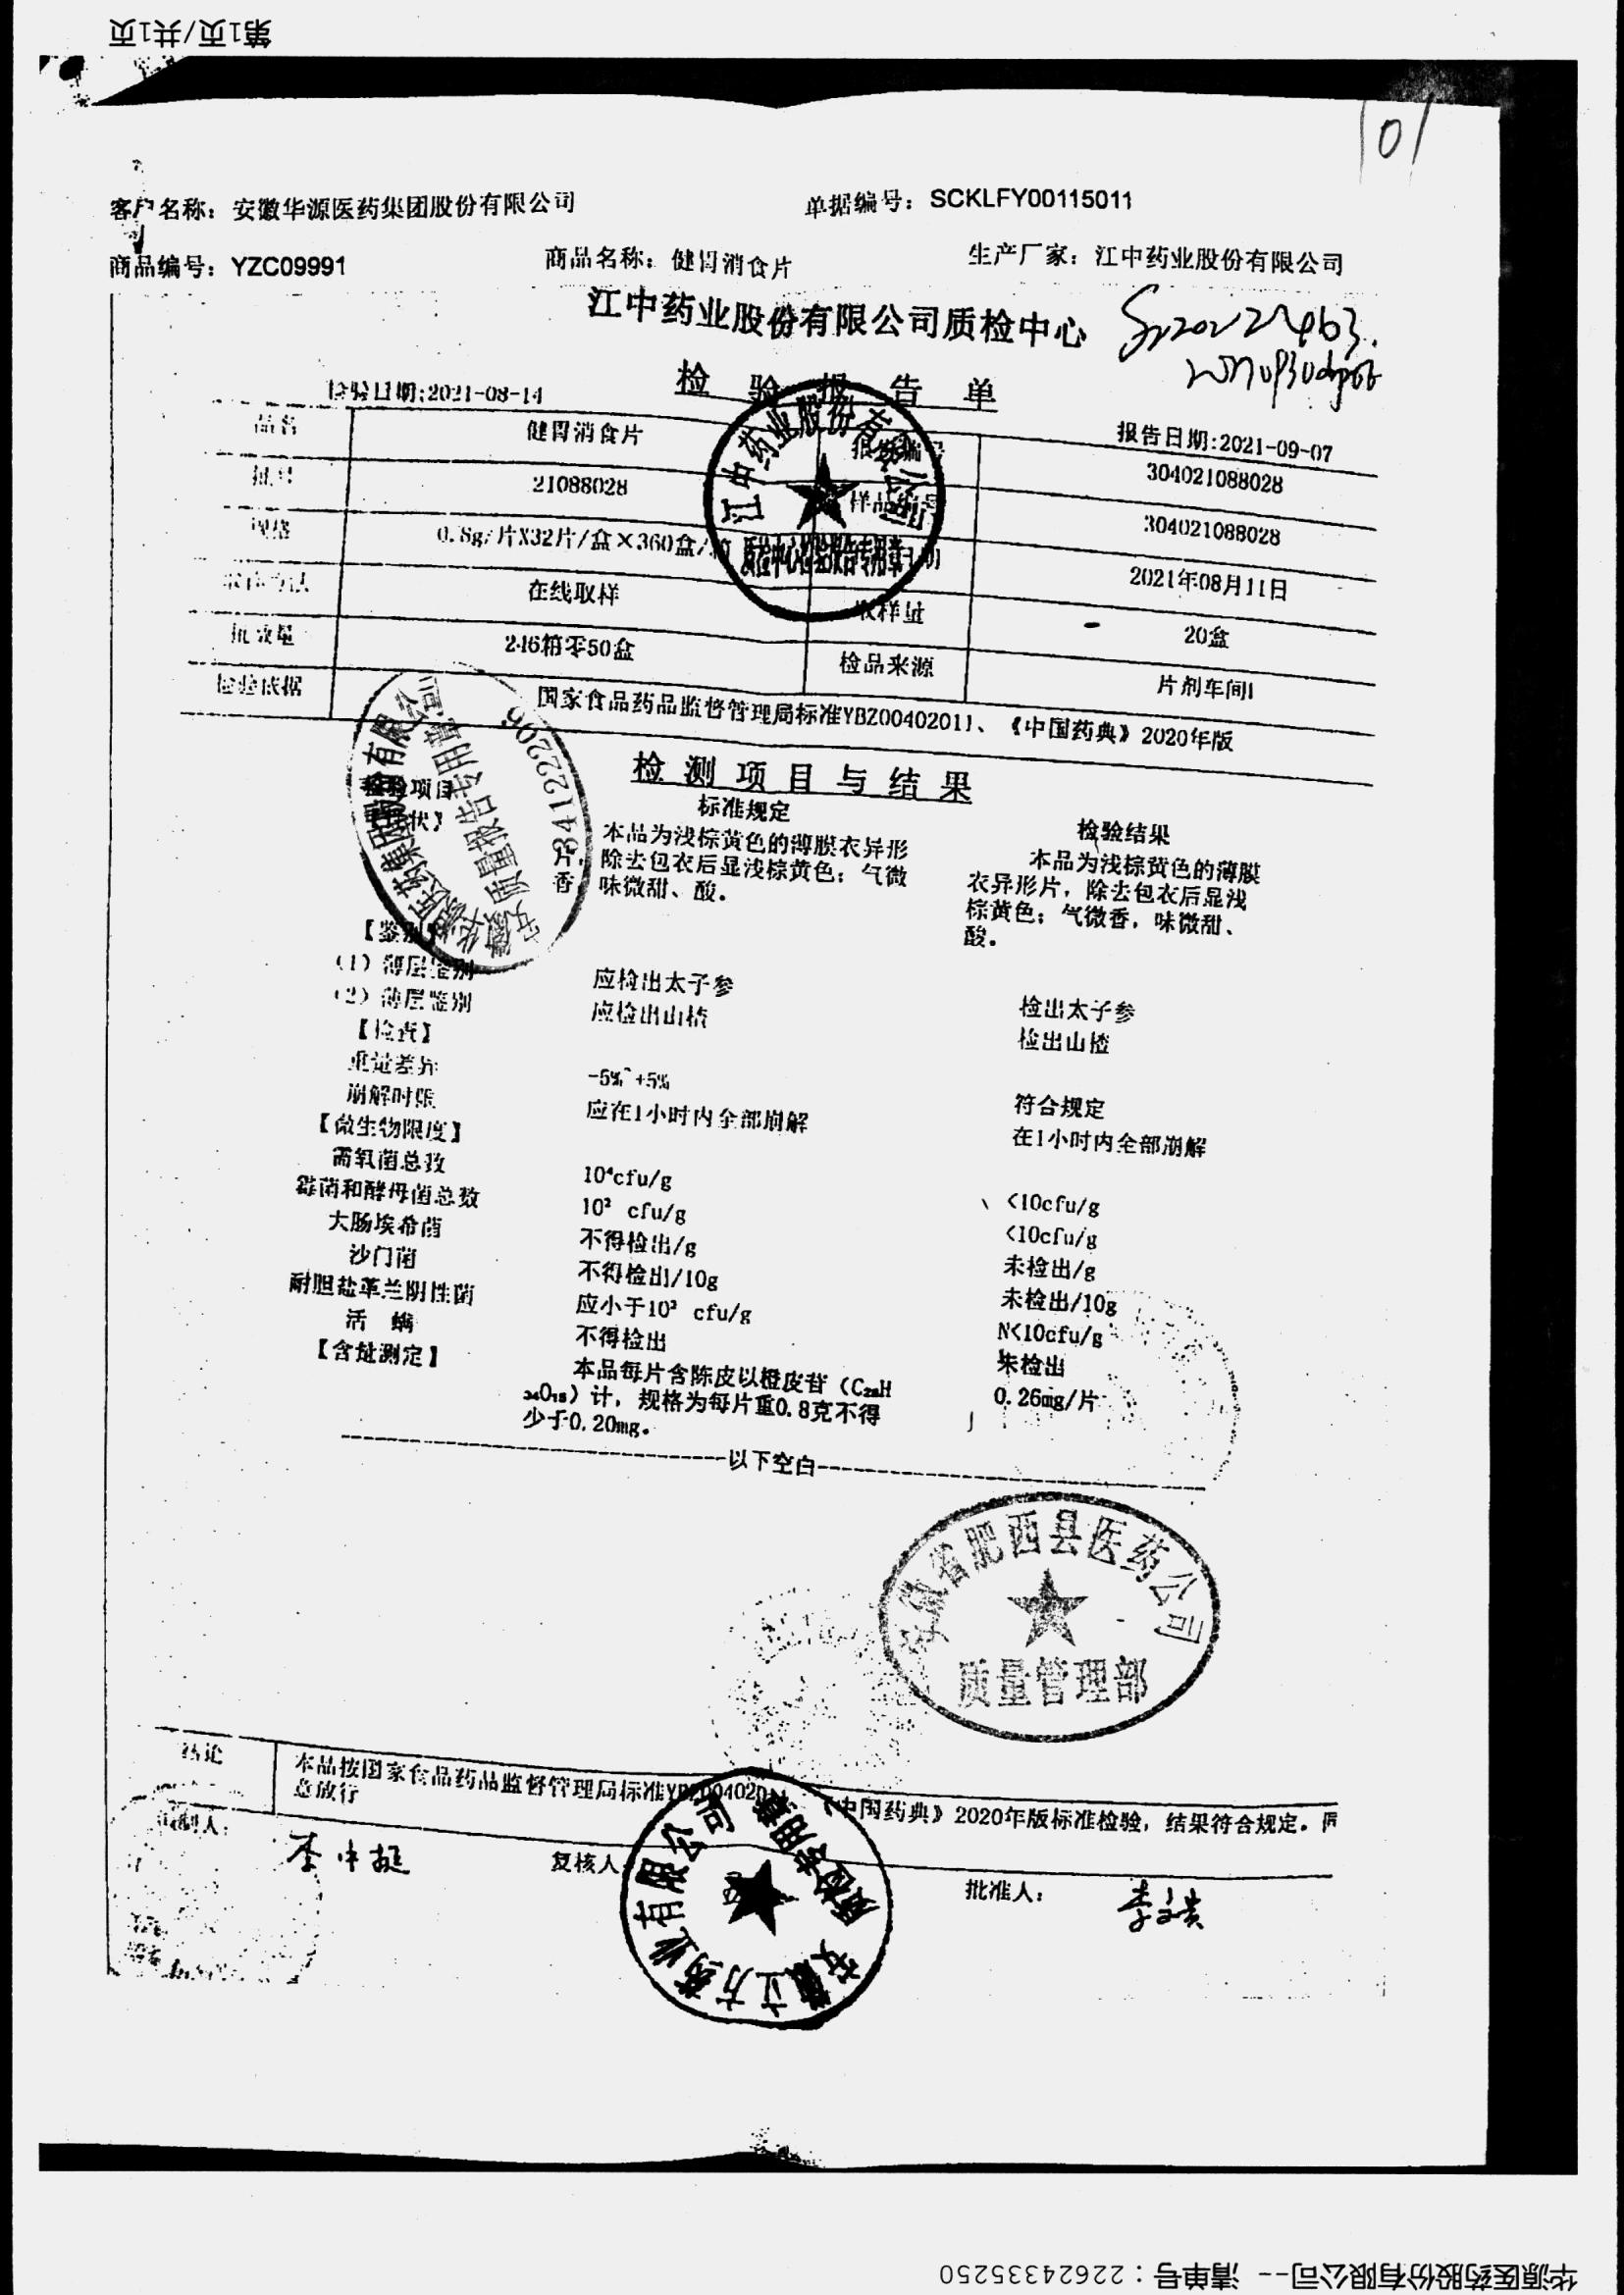 第1页/共1页
101
客户名称：安徽华源医药集团股份有限公司 单据编号：SCKLFY00115011
商品编号：YZC09991 商品名称：健胃消食片 生产厂家：江中药业股份有限公司
江中药业股份有限公司质检中心
检验报告单
检验日期:2021-08-14 报告日期:2021-09-07
品名 健胃消食片 报告编号 304021088028
批号 21088028 样品编号 304021088028
规格 0.8g/片X32片/盒×360盒/ 2021年08月11日
在线取样 取样量 20盒
批数量 246箱零50盒 检品来源 片剂车间1
检验依据 国家食品药品监督管理局标准YBZ00402011、《中国药典》2020年版
检测项目与结果
检验项目 标准规定 检验结果
状】 本品为浅棕黄色的薄膜衣异形 本品为浅棕黄色的薄膜
片，除去包衣后显浅棕黄色；气微 衣异形片，除去包衣后显浅
香，味微甜、酸。 棕黄色；气微香，味微甜、
酸。
【鉴别】
(1) 薄层鉴别 应检出太子参 检出太子参
(2) 薄层鉴别 应检出山楂 检出山楂
【检查】
重量差异 -5%~+5% 符合规定
崩解时限 应在1小时内全部崩解 在1小时内全部崩解
【微生物限度】
需氧菌总数 10⁴cfu/g <10cfu/g
霉菌和酵母菌总数 10² cfu/g <10cfu/g
大肠埃希菌 不得检出/g 未检出/g
沙门菌 不得检出/10g 未检出/10g
耐胆盐革兰阴性菌 应小于10² cfu/g N<10cfu/g
活 螨 不得检出 未检出
【含量测定】 本品每片含陈皮以橙皮苷（C₂₈H 0.26mg/片
₃₄O₁₅）计，规格为每片重0.8克不得
少于0.20mg。
以下空白
江中药业股份有限公司
质检中心检验报告专用章
安徽华源医药集团股份有限公司
质量报告专用章
3412220
安徽省肥西县医药公司
质量管理部
结论 本品按国家食品药品监督管理局标准YBZ0040201 《中国药典》2020年版标准检验，结果符合规定。同
意放行
复核人 批准人：
李中挺
李文贵
安徽立方药业有限公司
质检专用章
华源医药股份有限公司-- 清单号：22624335250